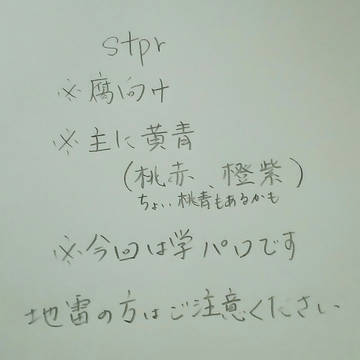 stpr
※腐向け
※主に黄青
(桃赤、橙紫)
ちょい桃青もあるかも
※今回は学パロです
地雷の方はご注意ください